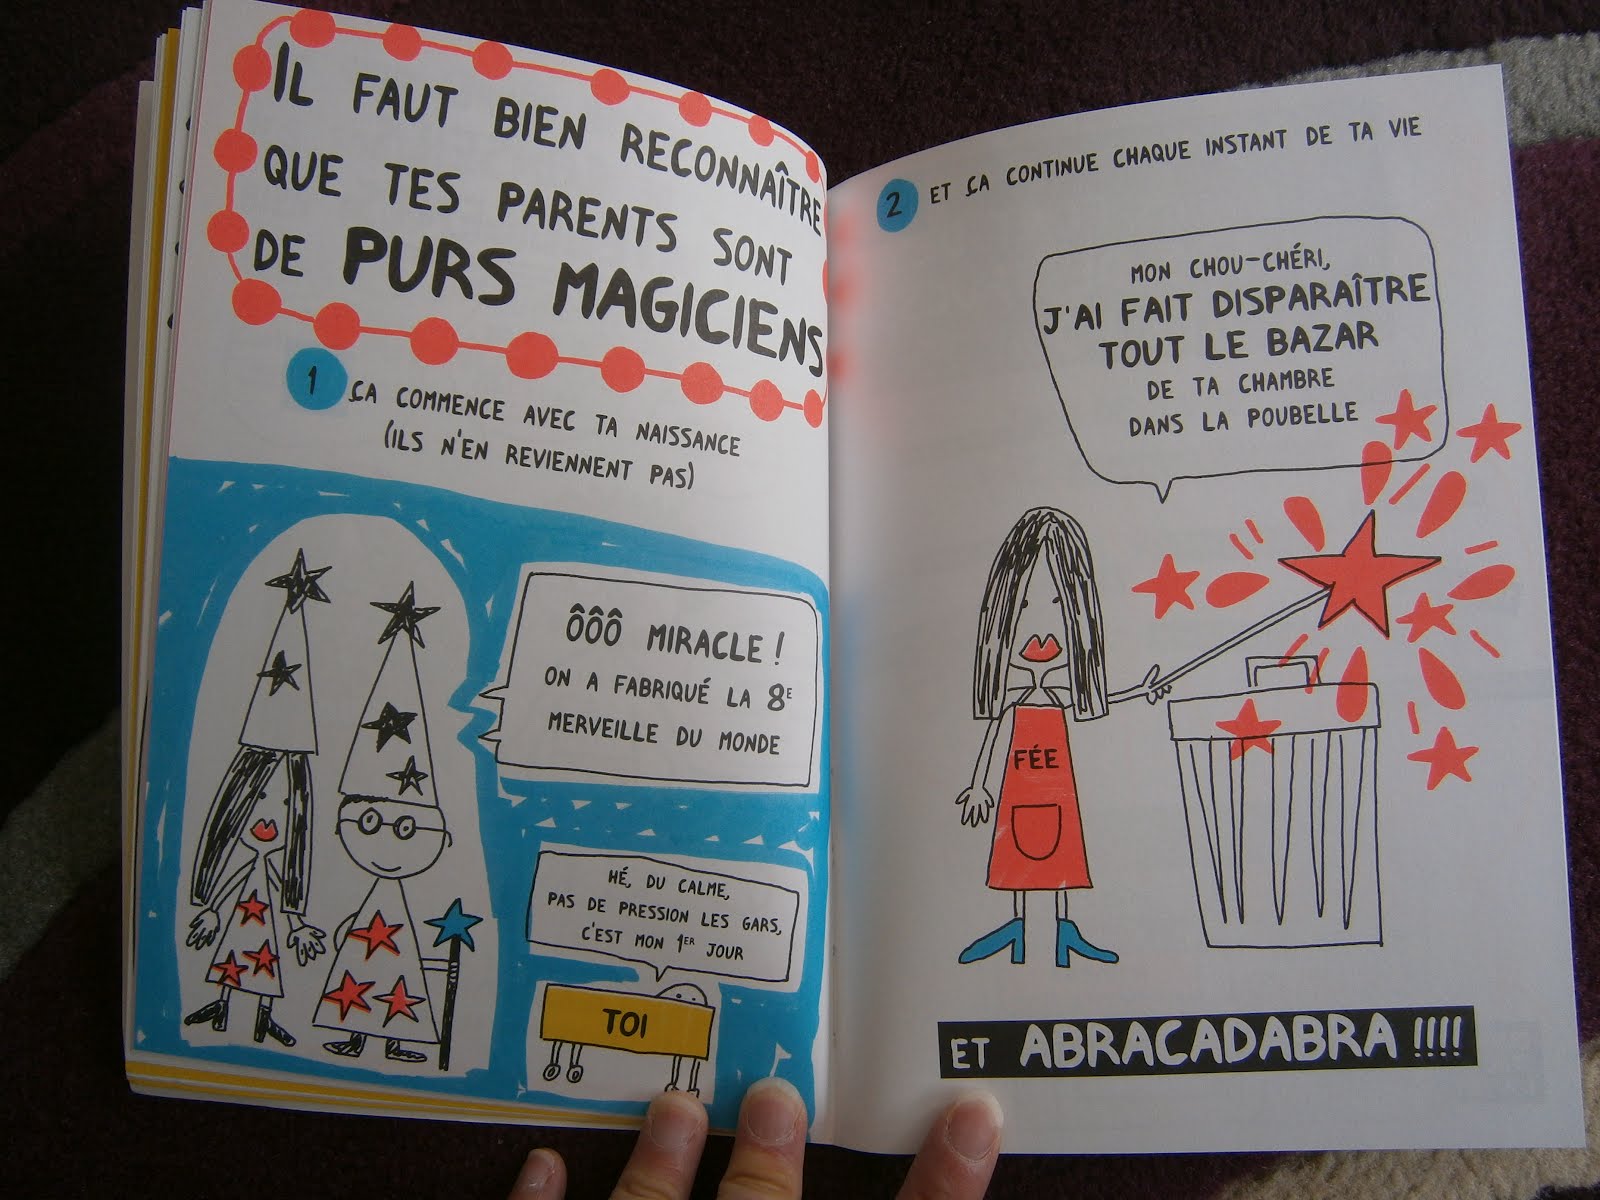 IL FAUT BIEN RECONNAÎTRE
QUE TES PARENTS SONT
DE PURS MAGICIENS
1 ÇA COMMENCE AVEC TA NAISSANCE
(ILS N'EN REVIENNENT PAS)
ÔÔÔ MIRACLE !
ON A FABRIQUÉ LA 8E
MERVEILLE DU MONDE
HÉ, DU CALME,
PAS DE PRESSION LES GARS,
C'EST MON 1ER JOUR
TOI
2 ET ÇA CONTINUE CHAQUE INSTANT DE TA VIE
MON CHOU-CHÉRI,
J'AI FAIT DISPARAÎTRE
TOUT LE BAZAR
DE TA CHAMBRE
DANS LA POUBELLE
FÉE
ET ABRACADABRA !!!!